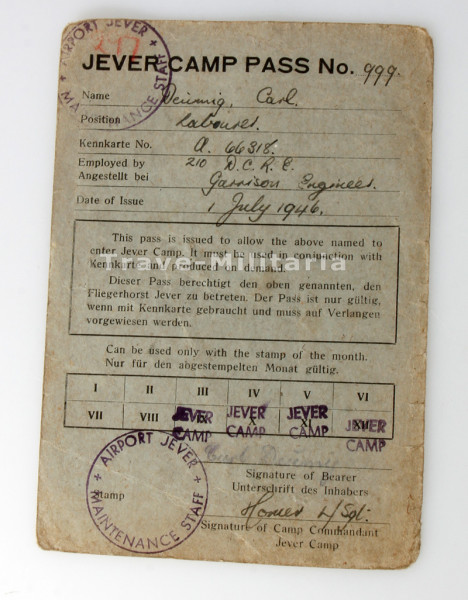 AIRPORT JEVER + MAINTENANCE STAFF +
217
JEVER CAMP PASS No. 999.
Name Deinnig, Carl.
Position Labourer.
Kennkarte No. A. 66318.
Employed by 210 D.C.R.E.
Angestellt bei Garrison Engineer.
Date of Issue 1 July 1946.
This pass is issued to allow the above named to
enter Jever Camp. It must be used in conjunction with
Kennkarte and produced on demand.
Trave-Militaria
Dieser Pass berechtigt den oben genannten, den
Fliegerhorst Jever zu betreten. Der Pass ist nur gültig,
wenn mit Kennkarte gebraucht und muss auf Verlangen
vorgewiesen werden.
Can be used only with the stamp of the month.
Nur für den abgestempelten Monat gültig.
I II III IV V VI
VII VIII IX X XI XII
JEVER CAMP JEVER CAMP JEVER CAMP JEVER CAMP
Carl
Signature of Bearer
Unterschrift des Inhabers
AIRPORT JEVER + MAINTENANCE STAFF +
Stamp
Signature of Camp Commandant
Jever Camp